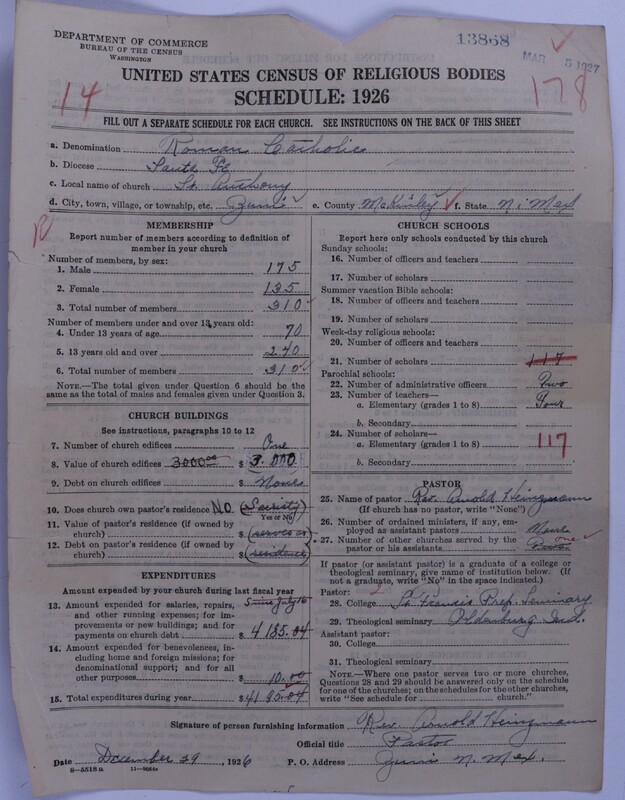 DEPARTMENT OF COMMERCE
BUREAU OF THE CENSUS
WASHINGTON
13868
MAR 5 1927
UNITED STATES CENSUS OF RELIGIOUS BODIES
SCHEDULE: 1926
14
178
FILL OUT A SEPARATE SCHEDULE FOR EACH CHURCH. SEE INSTRUCTIONS ON THE BACK OF THIS SHEET
a. Denomination Roman Catholic
b. Diocese Santa Fe
c. Local name of church St. Anthony
d. City, town, village, or township, etc. Zuni e. County McKinley f. State N. Mex
MEMBERSHIP
Report number of members according to definition of member in your church
Number of members, by sex:
1. Male 175
2. Female 135
3. Total number of members 310
Number of members under and over 13 years old:
4. Under 13 years of age 70
5. 13 years old and over 240
6. Total number of members 310
NOTE.—The total given under Question 6 should be the same as the total of males and females given under Question 3.
CHURCH BUILDINGS
See instructions, paragraphs 10 to 12
7. Number of church edifices One
8. Value of church edifices 3000.00 $ 3.000
9. Debt on church edifices $ None
10. Does church own pastor's residence No (Sacristy
Yes or No
11. Value of pastor's residence (if owned by church) $ (serves as)
12. Debt on pastor's residence (if owned by church) $ (residence)
EXPENDITURES
Amount expended by your church during last fiscal year
Since July 16
13. Amount expended for salaries, repairs, and other running expenses; for improvements or new buildings; and for payments on church debt $ 4185.04
14. Amount expended for benevolences, including home and foreign missions; for denominational support; and for all other purposes $ 10.00
15. Total expenditures during year $ 4195.04
CHURCH SCHOOLS
Report here only schools conducted by this church
Sunday schools:
16. Number of officers and teachers
17. Number of scholars
Summer vacation Bible schools:
18. Number of officers and teachers
19. Number of scholars
Week-day religious schools:
20. Number of officers and teachers
21. Number of scholars 117
Parochial schools:
22. Number of administrative officers Two
23. Number of teachers—
a. Elementary (grades 1 to 8) Four
b. Secondary
24. Number of scholars—
a. Elementary (grades 1 to 8) 117
b. Secondary
PASTOR
25. Name of pastor Rev. Arnold Heinzmann
(If church has no pastor, write "None")
26. Number of ordained ministers, if any, employed as assistant pastors None
27. Number of other churches served by the pastor or his assistants one
If pastor (or assistant pastor) is a graduate of a college or theological seminary, give name of institution below. (If not a graduate, write "No" in the space indicated.)
Pastor: 2
28. College St. Francis Prep. Seminary
29. Theological seminary Oldenburg Ind.
Assistant pastor:
30. College
31. Theological seminary
NOTE.—Where one pastor serves two or more churches, Questions 28 and 29 should be answered only on the schedule for one of the churches; on the schedules for the other churches, write "See schedule for ........ church."
Signature of person furnishing information Rev. Arnold Heinzmann
Official title Pastor
Date December 29, 1926 P. O. Address Zuni N. Mex.
8—5518a 11—9084a